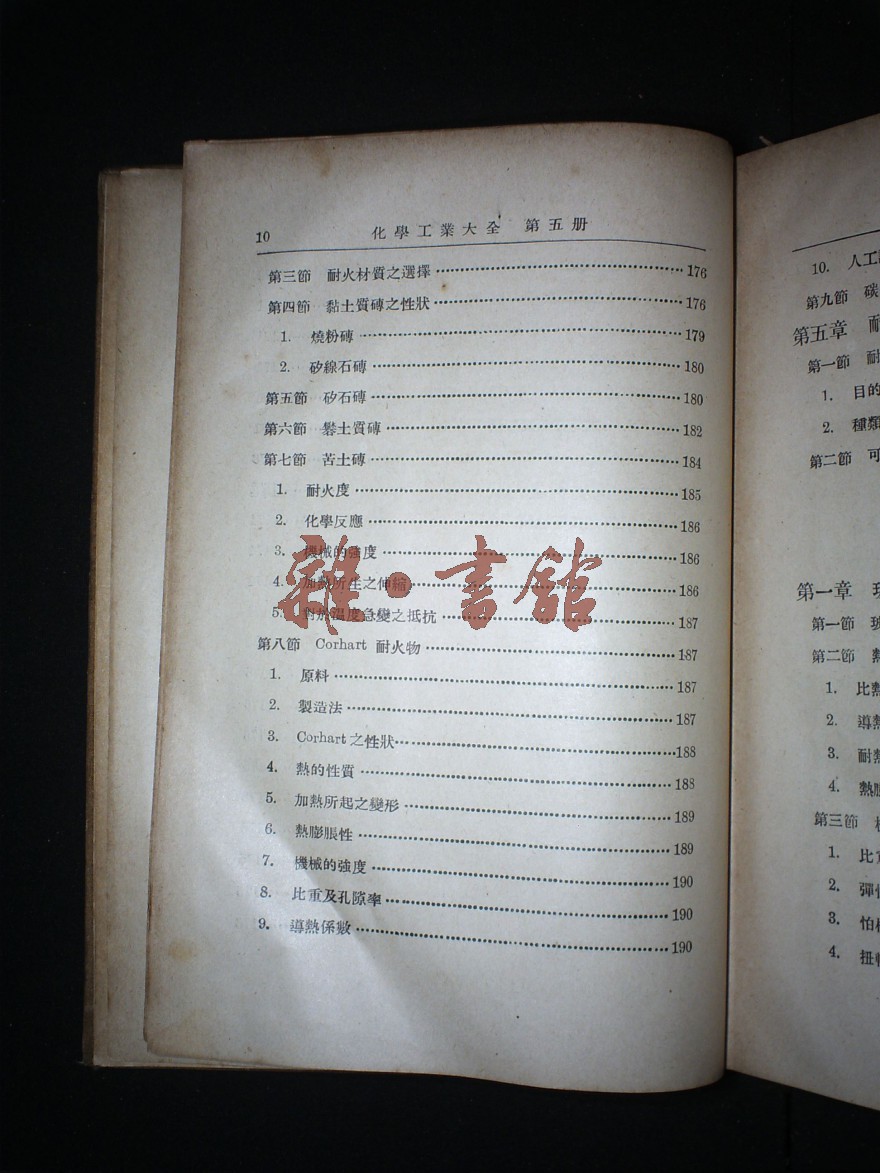 10 化學工業大全 第五册
第三節 耐火材質之選擇 176
第四節 黏土質磚之性狀 176
1. 燒粉磚 179
2. 矽線石磚 180
第五節 矽石磚 180
第六節 礬土質磚 182
第七節 苦土磚 184
1. 耐火度 185
2. 化學反應 186
3. 機械的強度 186
4. 加熱所生之伸縮 186
5. 對於溫度急變之抵抗 187
第八節 Corhart 耐火物 187
1. 原料 187
2. 製造法 187
3. Corhart之性狀 188
4. 熱的性質 188
5. 加熱所起之變形 189
6. 熱膨脹性 189
7. 機械的強度 190
8. 比重及孔隙率 190
9. 導熱係數 190
雜·書館
10. 人工
第九節 碳
第五章 耐
第一節 耐
1. 目的
2. 種類
第二節 可
第一章
第一節 玻
第二節 熱
1. 比熱
2. 導熱
3. 耐熱
4. 熱膨
第三節
1. 比重
2. 彈性
3.
4. 扭